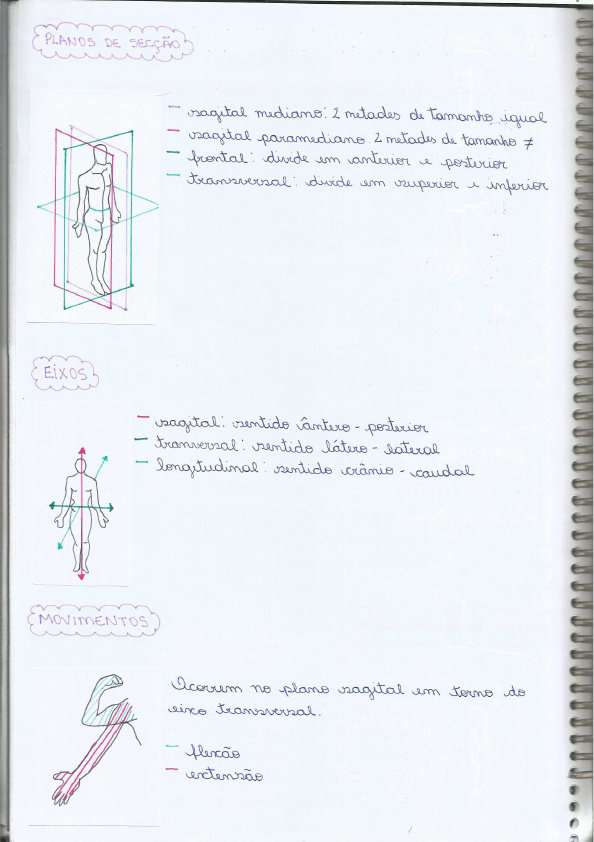 PLANOS DE SECÇÃO
sagital mediano: 2 metades de tamanho igual
sagital paramediano 2 metades de tamanho ≠
frontal: divide em anterior e posterior
transversal: divide em superior e inferior
EIXOS
sagital: sentido ântero - posterior
tranversal: sentido látero - lateral
longitudinal: sentido crânio - caudal
MOVIMENTOS
Ocorrem no plano sagital em torno do
eixo transversal.
flexão
extensão